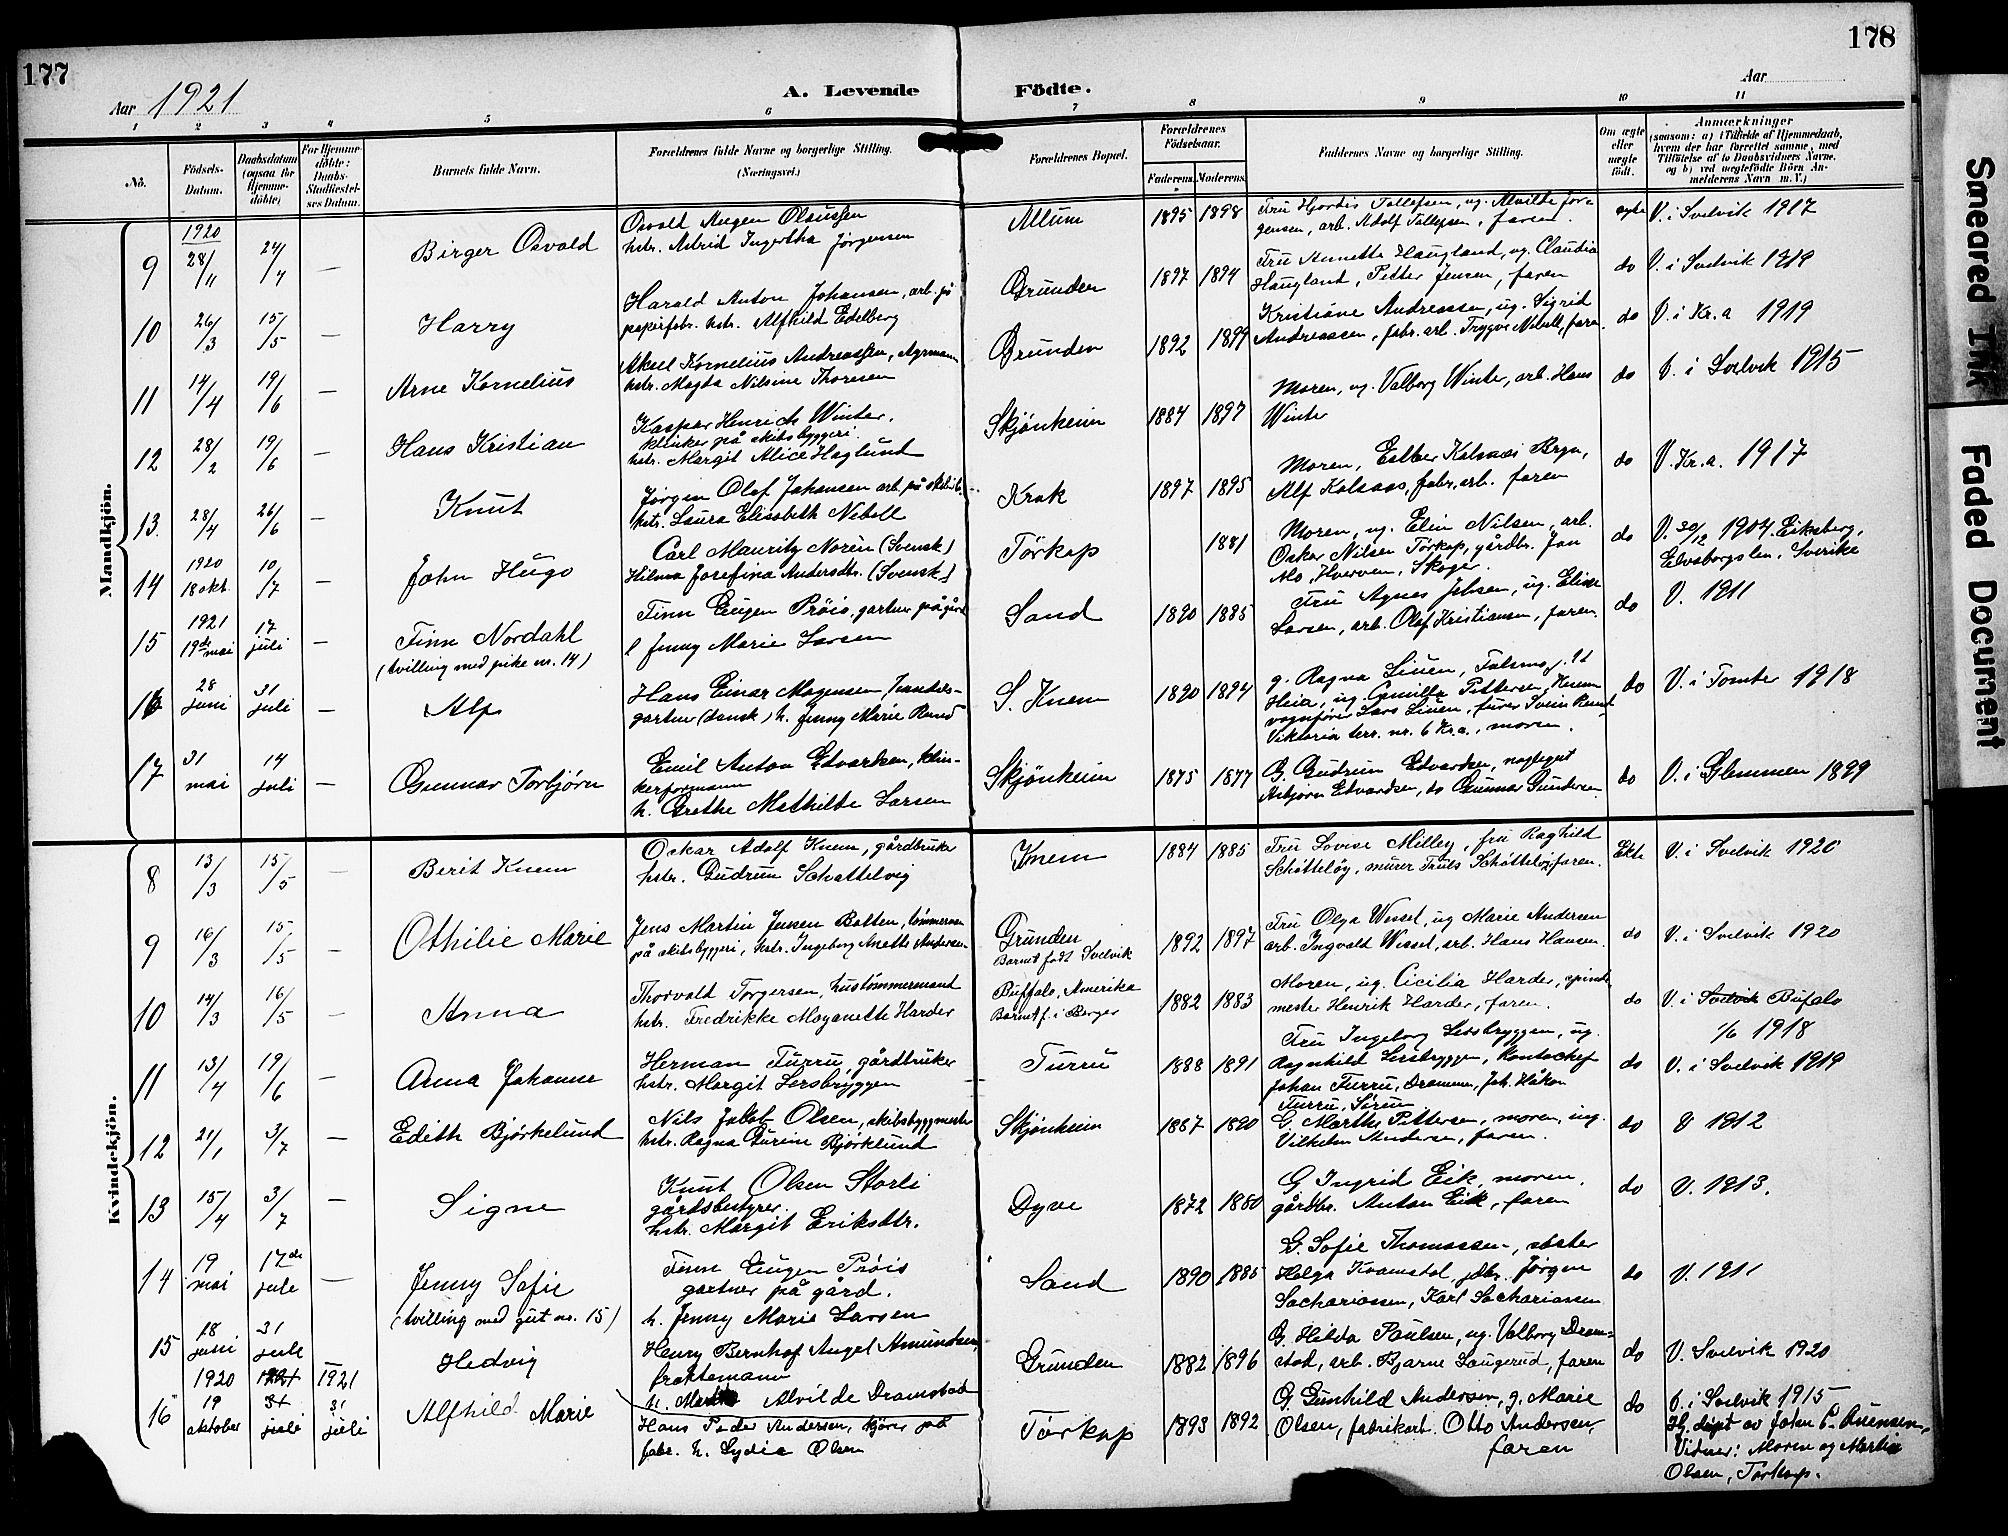 177
178
Aar 1921
A. Levende Födte.
Aar
1 2 3 4 5 6 7 8 9 10 11
No.
Fødsels-Datum.
Daabsdatum (ogsaa for Hjemme-døbte)
For Hjemme-døbte: Daabs-Stadfæstel-ses Datum.
Barnets fulde Navn.
Forældrenes fulde Navne og borgerlige Stilling. (Næringsvei.)
Forældrenes Bopæl.
Forældrenes Fødselsaar.
Faderens. Moderens.
Faddernes Navne og borgerlige Stilling.
Om ægte eller uægte født.
Anmærkninger
(saasom: a) i Tilfælde af Hjemmedaab, hvem der har forrettet samme, med Tilføielse af to Daabsvidners Navne, og b) ved uægtefødte Börn An-melderens Navn m. V.)
Mandkjön.
9 1920 28/11 24/4 — Birger Osvald
Osvald Augen Olaussen
hstr. Astrid Ingertha Jørgensen
Allum 1895 1898
Fru Hjørdis Tollefsen, ug. Alvilde Jør-
gensen, arb. Adolf Tollefsen, faren.
egte V. i Svelvik 1917
10 26/3 15/5 — Harry
Harald Anton Johansen, arb. på
papirfabr. hstr. Alfhild Edelberg
Grunden 1897 1894
Fru Annette Haugland, ug. Claudia
Haugland, Petter Jensen, faren
do V. i Svelvik 1919
11 14/4 19/6 — Arne Kornelius
Aksel Kornelius Andreassen,
hstr. Magda Nilsine Thoresen
Grunden 1892 1899
Kristiane Andreassen, ug. Sigrid
Andreassen, fabr. arb. Trygve Nebell, faren.
do V. i Kr.a 1919
12 28/2 19/6 — Hans Kristian
Kaspar Henrich Winter,
klinker på skibsbyggeri.
hstr. Margit Alice Haglund
Skjönheim 1884 1897
Moren, ug. Valborg Winter, arb. Hans
Winter
do V. i Svelvik 1915
13. 28/4 26/6 — Knut
Jørgen Olaf Johansen arb. på
hstr. Laura Elisabeth Nebell
Krok 1897 1895
Moren, Esther Kolsaas Bryn,
Alf Kolsaas, fabr. arb. faren
do V. Kr.a. 1917
14 1920 18 okt. 10/7 — John Hugo
Carl Mauritz Norèn (Svensk)
Hilma Josefina Andersdtr. (Svensk)
Törkop 1881
Moren, ug. Elin Nilsen, arb.
Oskar Nilsen Törkop, gårdbr. Jon
Mo, Hverven, Skoger.
do V. 30/12 1904. Eiksberg,
Elvsborgslen, Sverike
15 1921 19de mai 17 juli — Finn Nordahl
(tvilling med pike nr. 14)
Finn Eugen Próis, gartner på gård
Jenny Marie Larsen
Sand 1890 1885
Fru Agnes Jebsen, ug. Elise
Larsen, arb. Olaf Kristiansen, faren.
do V. 1911
16 28 juni 31 juli — Alf
Hans Einar Mogensen handels-
gartner (dansk) h. Jenny Marie Rund
S. Knem 1890 1894
g. Ragna Linen,
Heia, ug. Camilla Pettersen, Knem
vognfører Lars Linen,
Viktoria terr. nr. 6 Kr.a., moren.
do V. i Tomter 1918
17 31 mai 14 juli — Gunnar Torbjørn
Emil Anton Edvardsen, klin-
kerformann
h. Grethe Mathilde Larsen
Skjönheim 1875 1877
G. Gudrun Edvardsen,
Asbjørn Edvardsen, do Gunnar Gundersen
do V. i Glemmen 1899
Kvindekjön.
8 13/3 15/5 — Berit Knem
Oskar Adolf Knem, gårdbruker
hstr. Gudrun Schottelvig
Knem 1884 1885
Fru Lovise Milley, fru Raghild
Schöttelvig, murer Truls Schöttelvig, faren.
Ekte V. i Svelvik 1920
9 16/3 15/5 — Othilie Marie
Jens Martin Jensen Bolten, tømmermann
på skibsbyggeri, hstr. Ingeborg Anette Andersen
Grunden
Barnet født Svelvik 1892 1897
Fru Olga Wessel, ug Marie Andersen
arb. Ingvald Wessel, arb. Hans Hansen.
do V. i Svelvik 1920
10 14/3 16/5 — Anna
Thorvald Torgersen, hustømmermand
hstr. Fredrikke Mozanette Harder
Buffalo, Amerika
Barnet f. i Berger 1882 1883
Moren, ug. Cicilia Harder, spinde-
mester Henrik Harder, faren.
do V. i Svelvik Bufalo
1/6 1918
11 13/4 19/6 — Anna Johanne
Herman Furru, gårdbruker
hstr. Margit Sersbryggen
Furru 1888 1891
Fru Ingeborg Sersbryggen, ug.
Ragnhild Sersbryggen, kontorchef
Johan Furru, Drammen, Joh. Håkon
Furru, Siren
do V. i Svelvik 1919
12 21/1 3/7 — Edith Bjørkelund
Nils Jakob Olsen, skibsbyggmester
hstr. Ragna Gurine Bjørklund
Skjönheim 1887 1890
G. Marthe Pettersen, moren, ug.
Vilhelm Andersen, faren.
do V 1912
13 15/4 3/7 — Signe
Knut Olsen Storli
gårdsbestyrer.
hstr. Margit Eriksdtr.
Dyve 1872 1880
G Ingrid Eik, moren,
gårdbr. Anton Eik, faren
do V. 1913.
14 19 mai 17de jule — Jenny Sofie
(tvilling med gut nr. 15)
Finn Eugen Próis
gartner på gård.
h. Jenny Marie Larsen
Sand 1890 1885
G. Sofie Thomassen, søster
Helga Kvamstol, gdbr. Jörgen
Sachariassen, Karl Sachariassen
do V. 1911
15 18 juni 31 jule — Hedvig
Henry Bernhof Angel Amundsen
fraktemann
h. Alvilde Dramstad
Grunden 1882 1896
G. Hilda Paulsen, ug. Valborg Dram-
stad, arb. Bjarne Laugerud, faren
do V. Svelvik 1920
16 1920 19 oktober 1921 31 juli 1921 31 juli Alfhild Marie
Hans Peder Andersen, kjører på
fabr. h. Lydia Olsen
Törkop 1893 1892
G. Gunhild Andersen, g. Marie
Olsen, fabrikarb. Otto Andersen,
faren
do V. i Svelvik 1915
Hj. døpt av John E. Svensen,
Vidner: Moren og Martin
Olsen, Törkop.
Smeared Ink
Faded Document